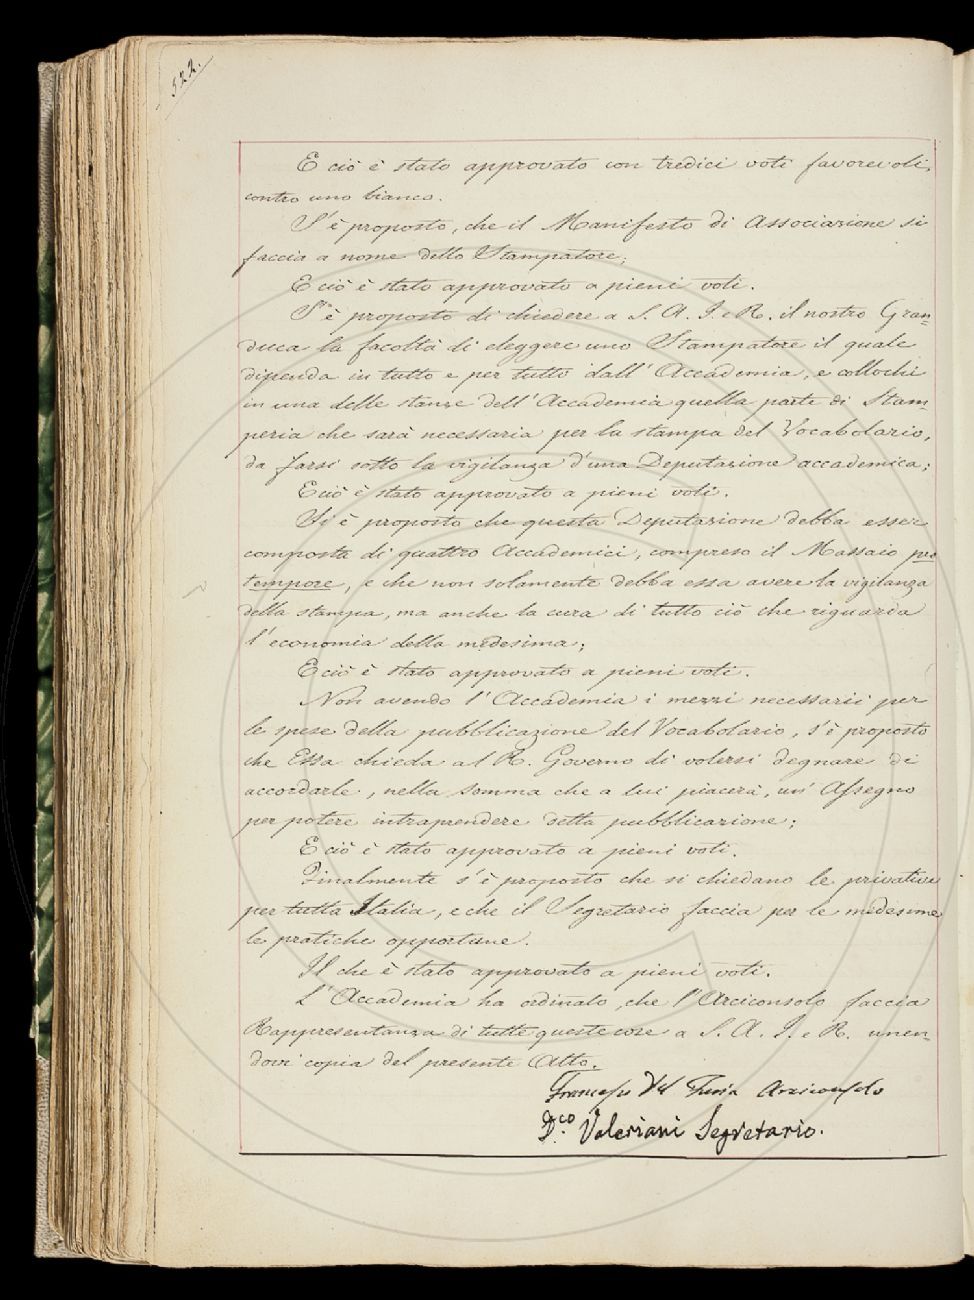 522.
E ciò è stato approvato con tredici voti favorevoli,
contro uno bianco.
S'è proposto, che il Manifesto di Associazione si
faccia a nome dello Stampatore;
E ciò è stato approvato a pieni voti.
S'è proposto di chiedere a S. A. I. e R. il nostro Gran=
duca la facoltà di eleggere uno Stampatore il quale
dipenda in tutto e per tutto dall'Accademia, e collochi
in una delle stanze dell'Accademia quella parte di Stam=
peria che sarà necessaria per la stampa del Vocabolario,
da farsi sotto la vigilanza d'una Deputazione accademica;
E ciò è stato approvato a pieni voti.
Si è proposto che questa Deputazione debba esser
composta di quattro Accademici, compreso il Massaio pro
tempore, e che non solamente debba essa avere la vigilanza
della stampa, ma anche la cura di tutto ciò che riguarda
l'economia della medesima;
E ciò è stato approvato a pieni voti.
Non avendo l'Accademia i mezzi necessarii per
le spese della pubblicazione del Vocabolario, s'è proposto
che Essa chieda al R. Governo di volersi degnare di
accordarle, nella somma che a lui piacerà, un'Assegno
per potere intraprendere detta pubblicazione;
E ciò è stato approvato a pieni voti.
Finalmente s'è proposto che si chiedano le privative
per tutta Italia, e che il Segretario faccia per le medesime
le pratiche opportune.
Il che è stato approvato a pieni voti.
L'Accademia ha ordinato, che l'Arciconsolo faccia
Rappresentanza di tutte queste cose a S. A. I. e R. unen=
dovi copia del presente Atto.
Francesco Del Furia Arciconsolo
D.co Valeriani Segretario.